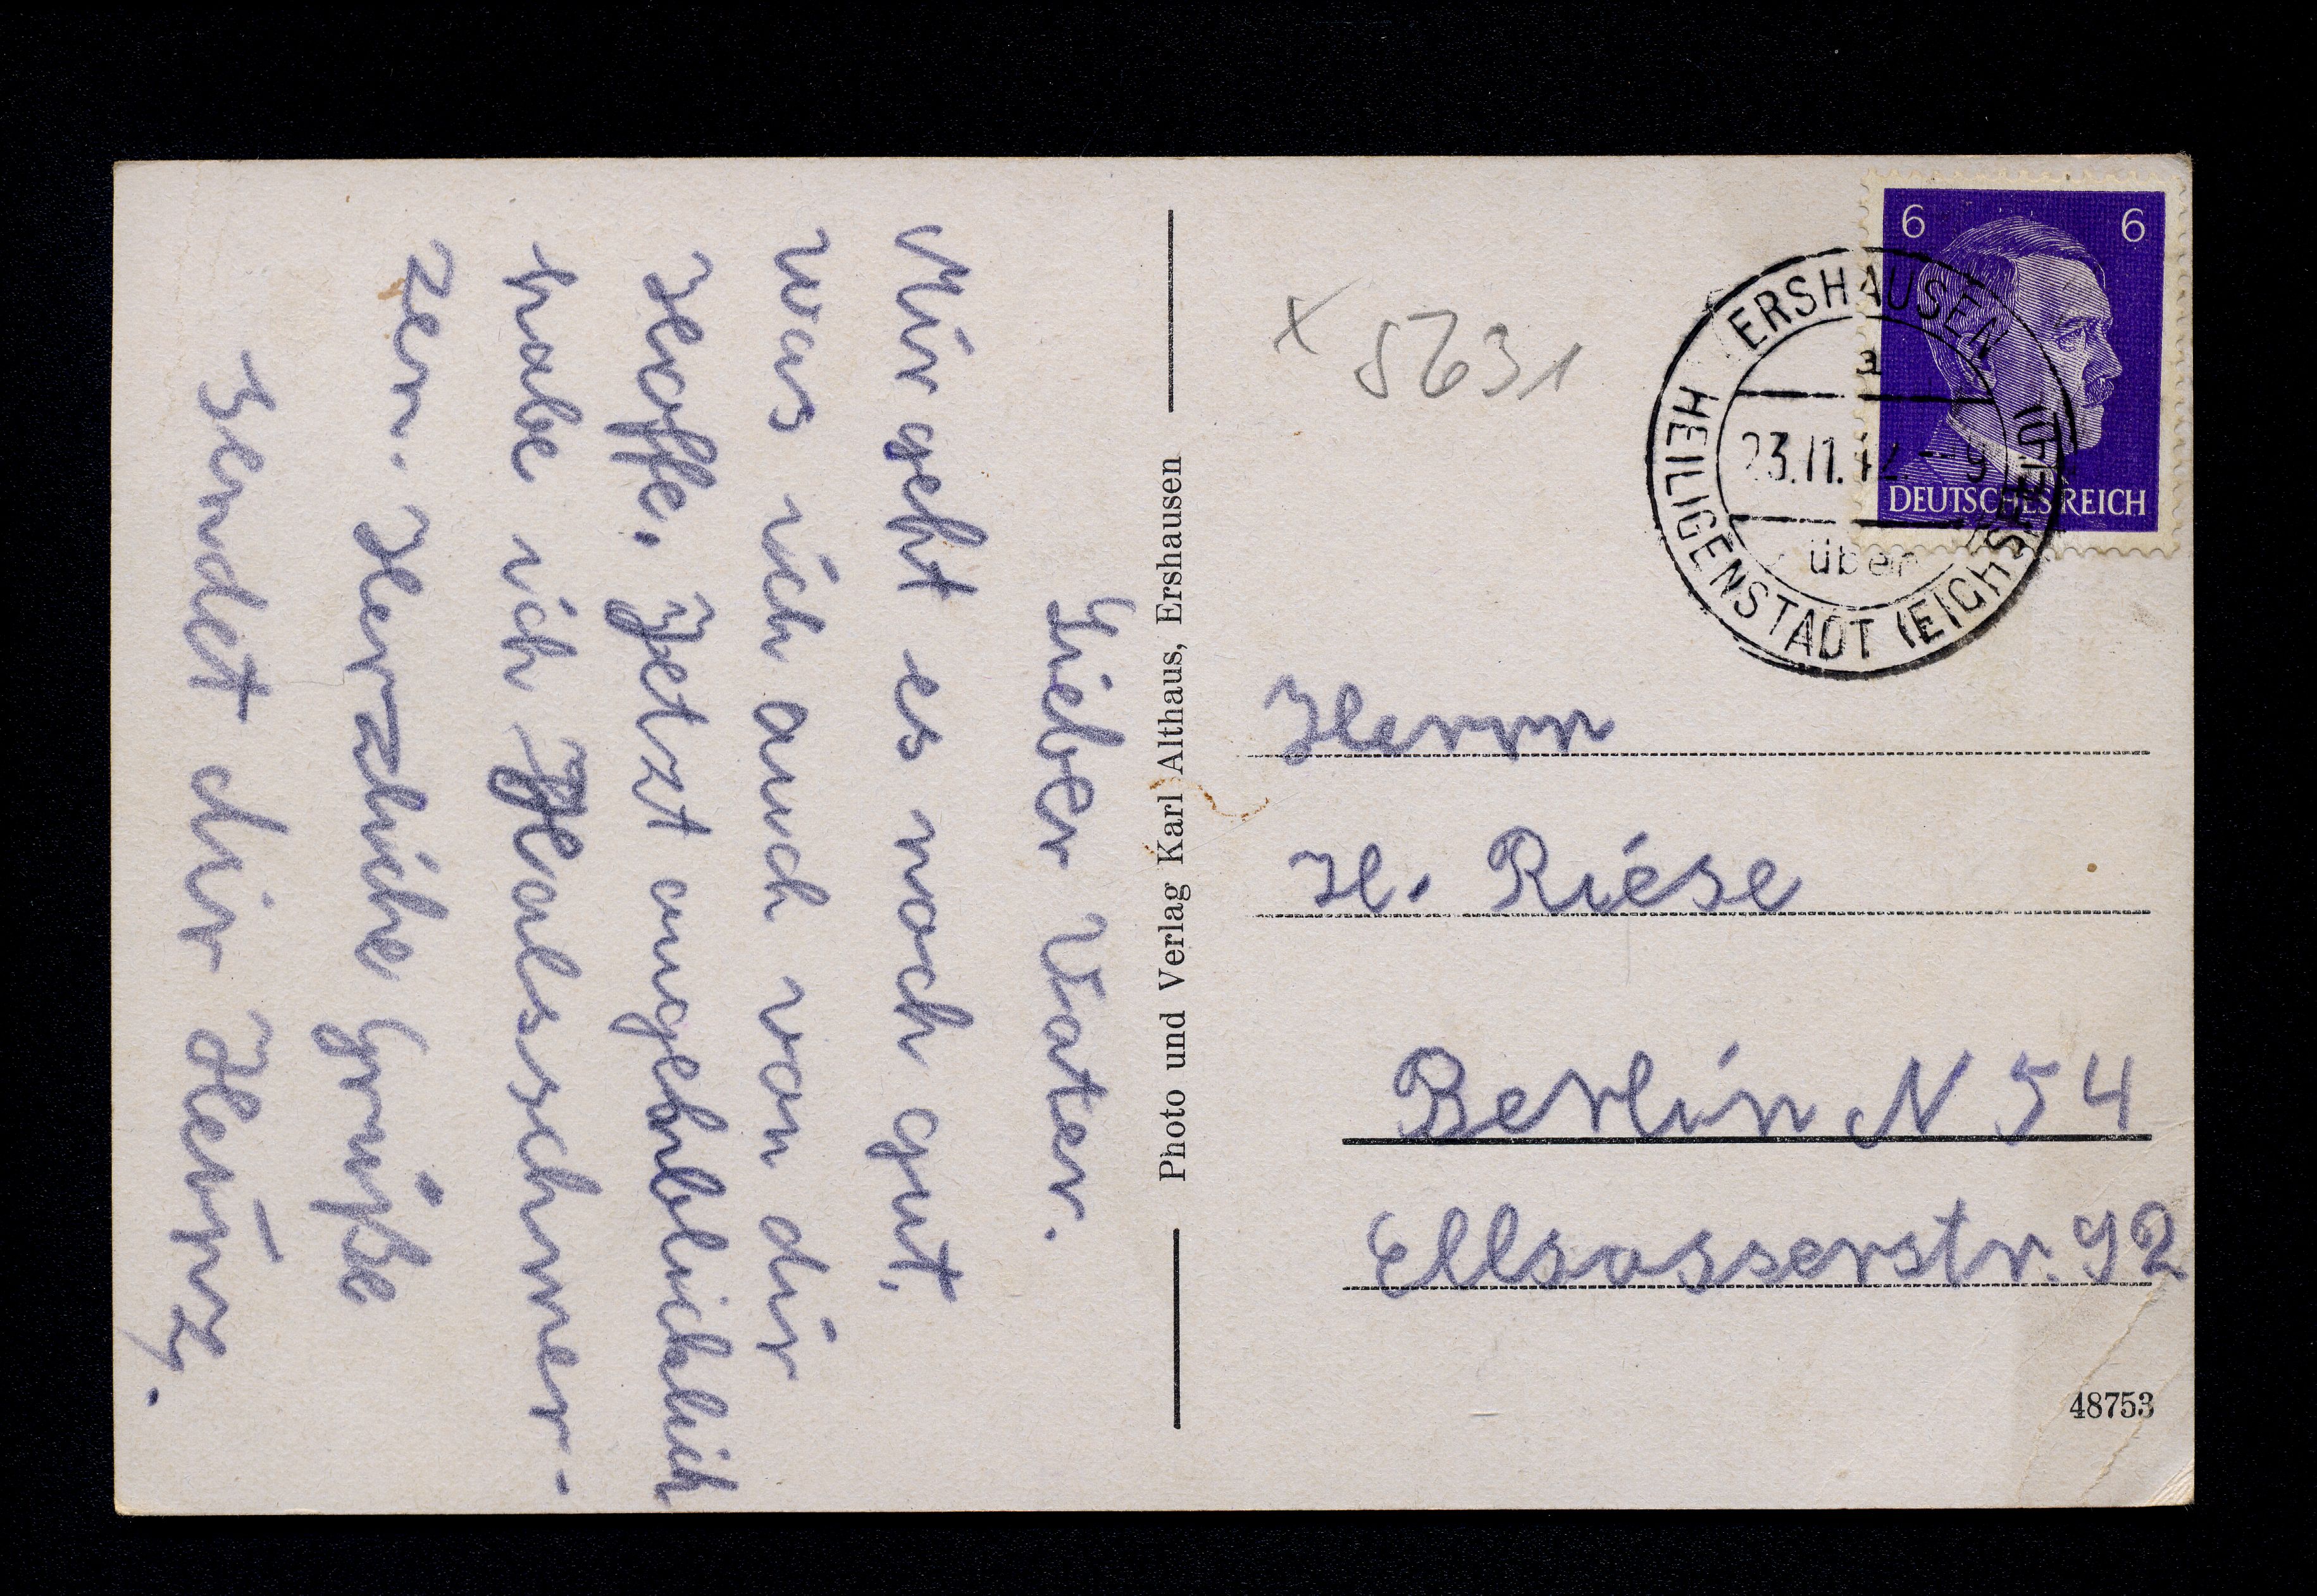 Lieber Vater.
Mir geht es noch gut,
was ich auch von dir
Hoffe. Jetzt augehnblichlich
habe ich Halsschmer-
zen. Herzliche Grüße
sendet dir Heinz.
Photo und Verlag Karl Althaus, Ershausen
x 5631
6 6
DEUTSCHES REICH
ERSHAUSEN
a
23.11.42.-9
über
HEILIGENSTADT (EICHSFELD)
Herrn
H. Riese
Berlin N 54
Ellsasserstr. 92
48753